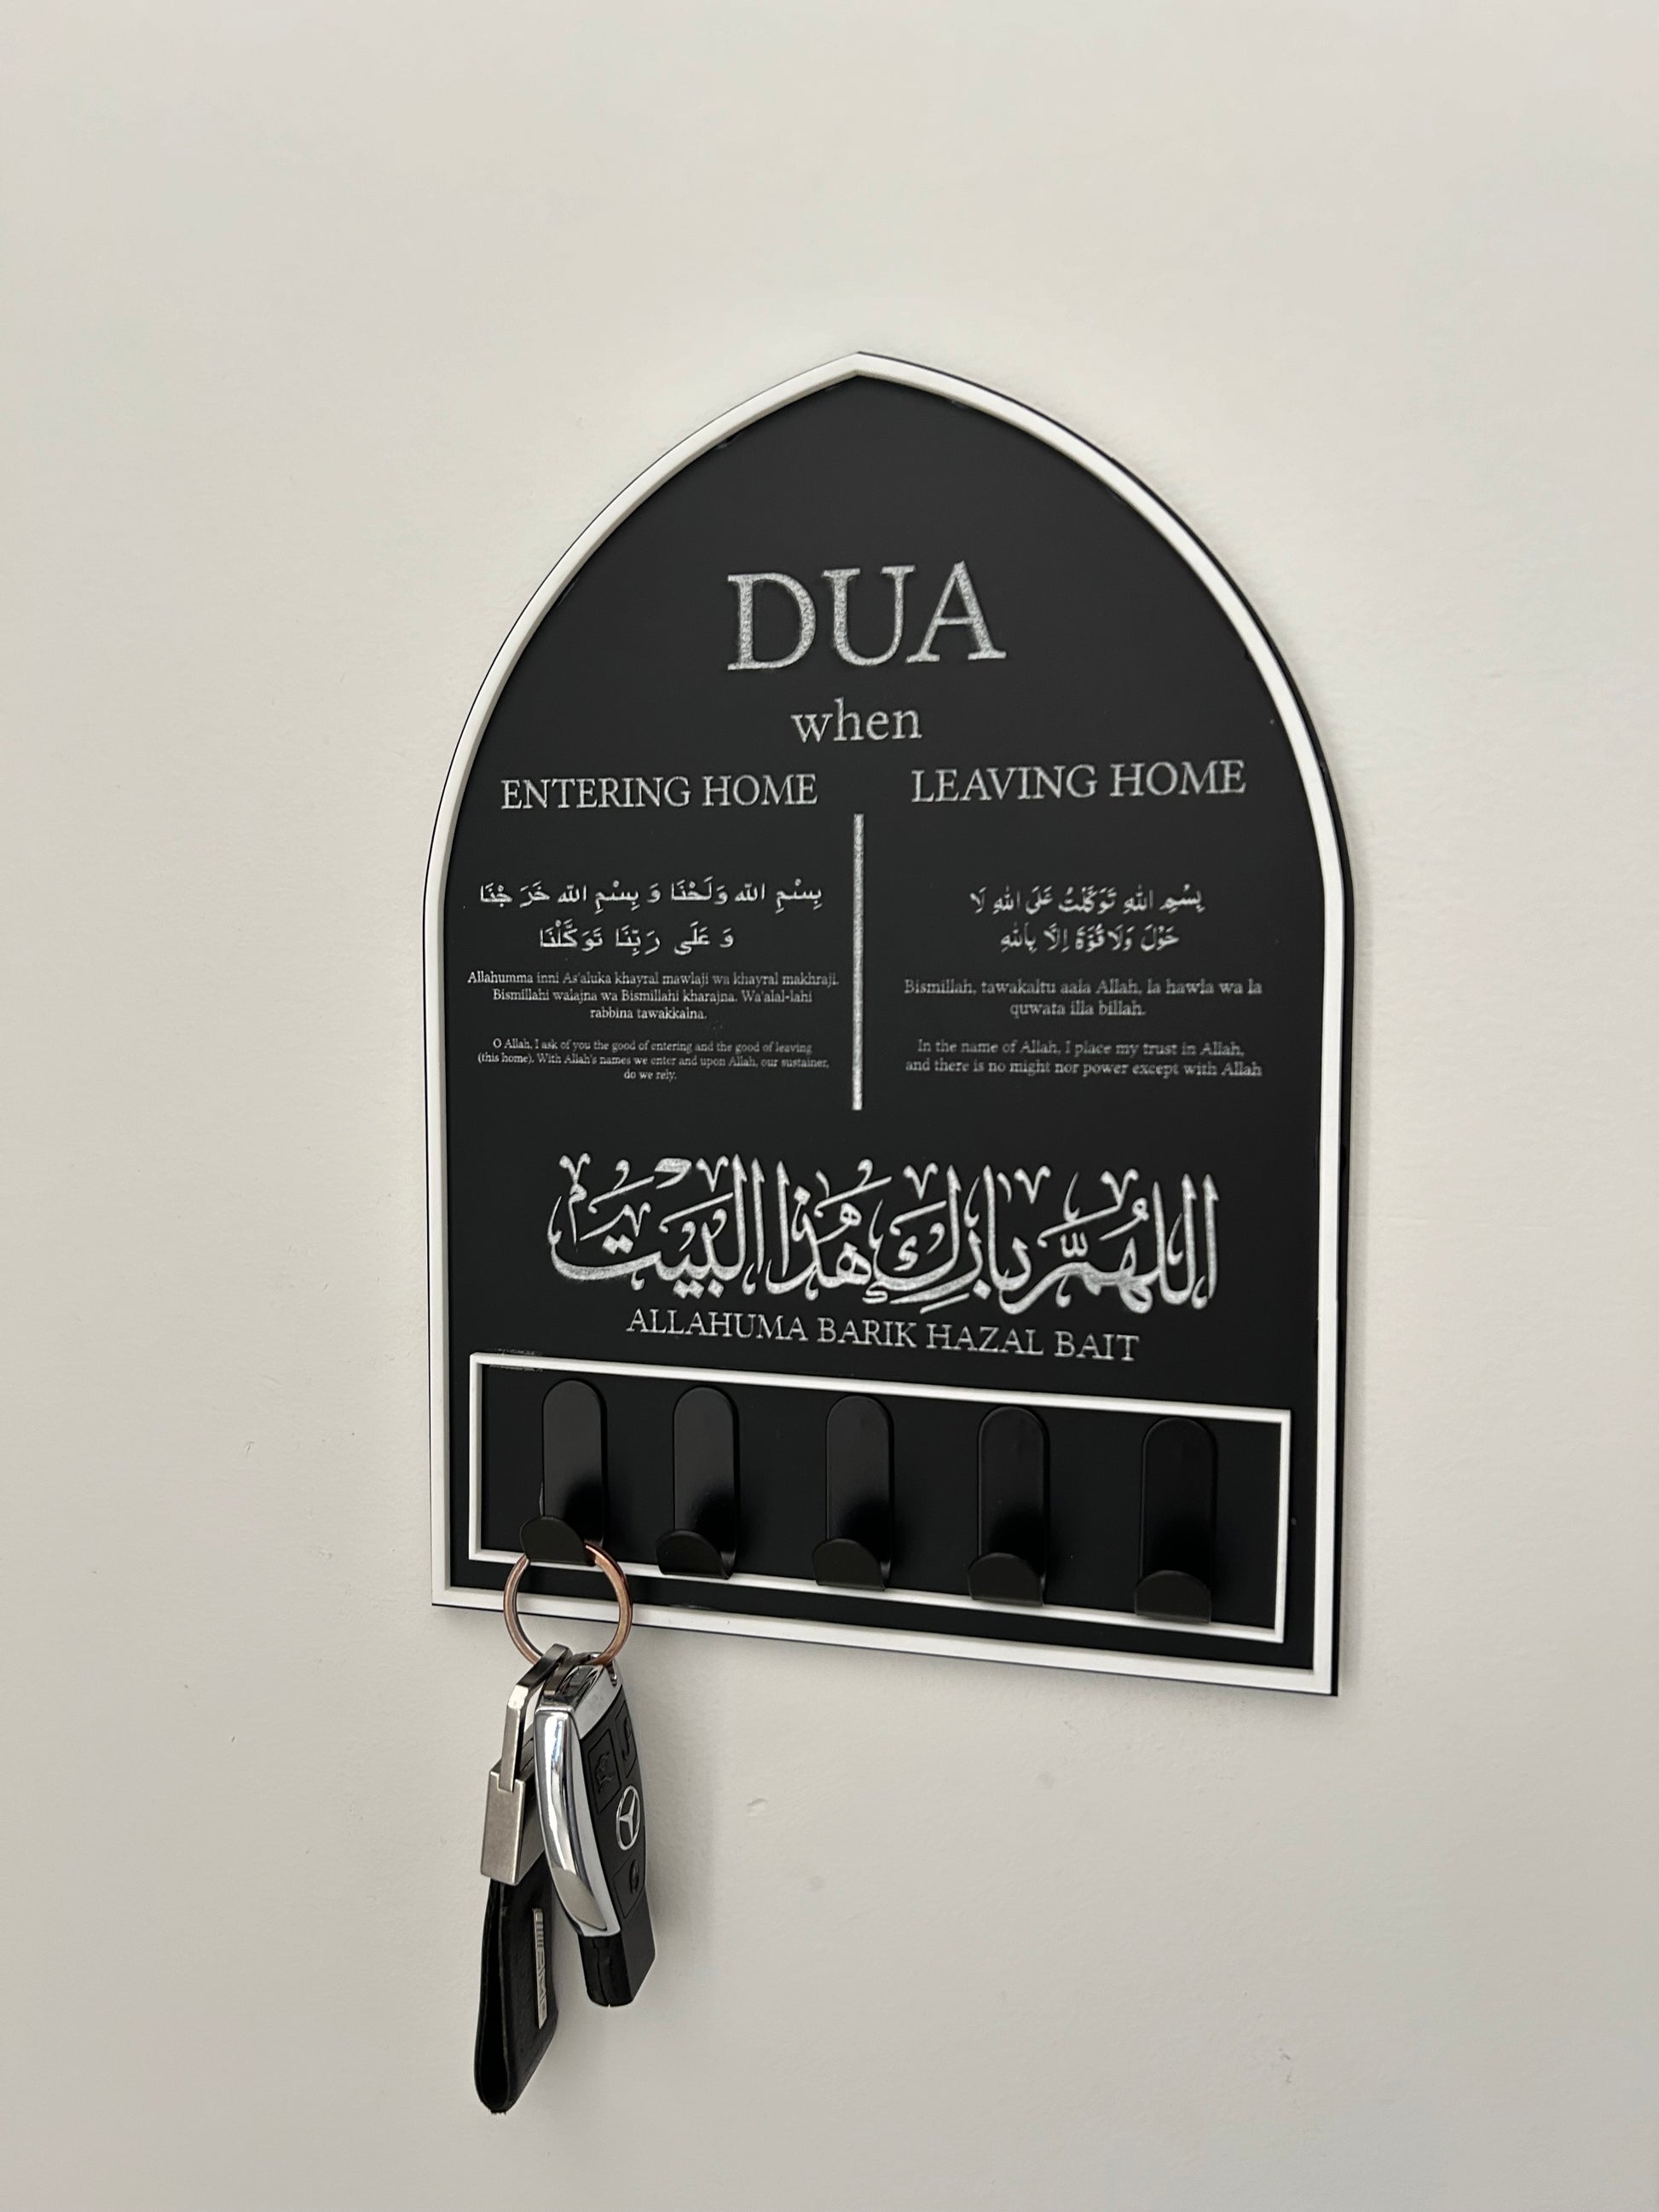 DUA
when
ENTERING HOME
بِسْمِ الله وَلَحْنَا وَ بِسْمِ الله خَرَجْنَا
وَ عَلَى رَبِّنَا تَوَكَّلْنَا
Allahumma inni As'aluka khayral mawlaji wa khayral makhraji.
Bismillahi walajna wa Bismillahi kharajna. Wa'alal-lahi
rabbina tawakkalna.
O Allah, I ask of you the good of entering and the good of leaving
(this home). With Allah's names we enter and upon Allah, our sustainer,
do we rely.
LEAVING HOME
بِسْمِ اللهِ تَوَكَّلْتُ عَلَى اللهِ لَا
حَوْلَ وَلَا قُوَّةَ إِلَّا بِاللهِ
Bismillah, tawakaltu aala Allah, la hawla wa la
quwata illa billah.
In the name of Allah, I place my trust in Allah,
and there is no might nor power except with Allah
اللهُمَّ بَارِك هَذَا البَيْت
ALLAHUMA BARIK HAZAL BAIT